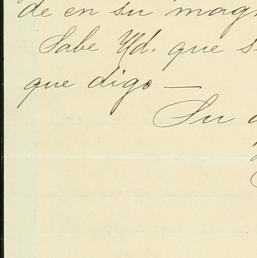 de en su mag
Sabe Ud. que s
que digo —
Su